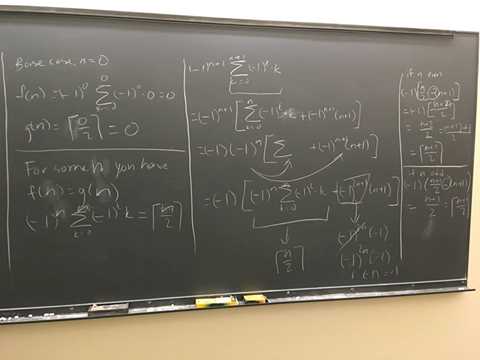 Base case, n=0
f(n) = (-1)^0 ∑_{k=0}^{0} (-1)^0 · 0 = 0
g(n) = ⌈0/2⌉ = 0
For some n you have
f(n) = g(n)
(-1)^n ∑_{k=0}^{n} (-1)^k · k = ⌈n/2⌉
(-1)^{n+1} ∑_{k=0}^{n+1} (-1)^k · k
= (-1)^{n+1} [ ∑_{k=0}^{n} (-1)^k · k + (-1)^{n+1} (n+1) ]
= (-1)(-1)^n [ ∑ + (-1)^{n+1} (n+1) ]
= (-1) [ (-1)^n ∑_{k=0}^{n} (-1)^k · k + (-1)^{2n+1} (n+1) ]
⌈n/2⌉
(-1)^{2n} (-1)
1 · (-1) = -1
if n even
= ⌈(n+1)/2⌉
if n odd
= (n+1)/2 = ⌈(n+1)/2⌉